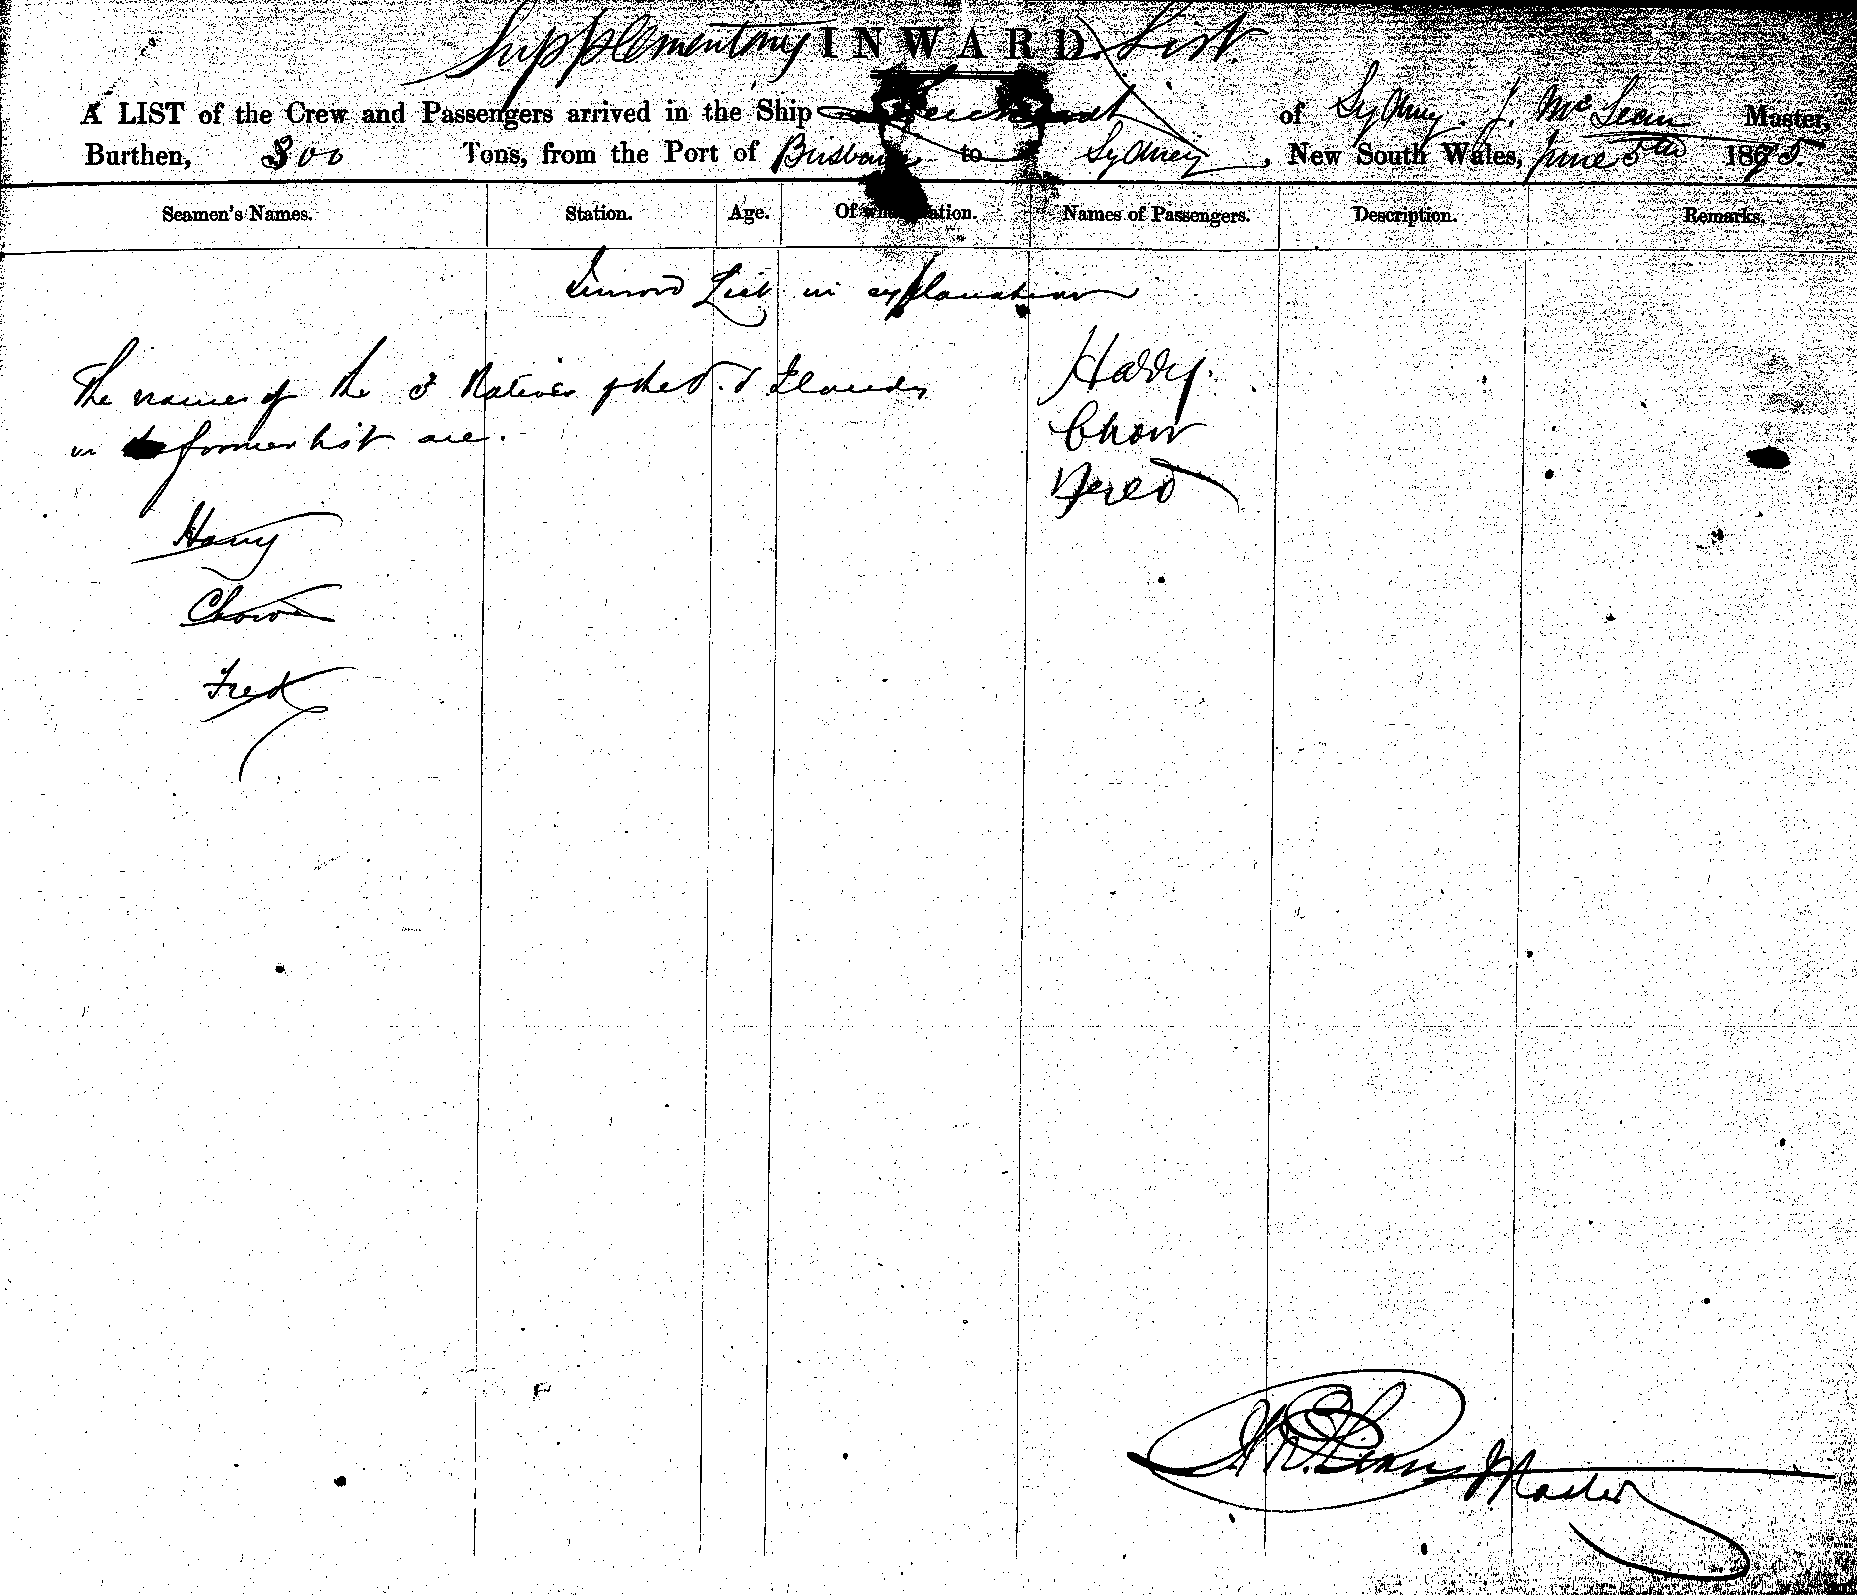 Supplementary INWARD. List.
A LIST of the Crew and Passengers arrived in the Ship of Sydney. J. McLean Master,
Burthen, 300 Tons, from the Port of Brisbane to Sydney, New South Wales, June 5th 1875.
Seamen's Names. Station. Age. Of what Nation. Names of Passengers. Description. Remarks.
Inward List in explanation
The names of the 3 Natives of the S. S Islands
in former list are.
Harry.
Chow
Fred
Harry
Chow
Fred
McLean Master